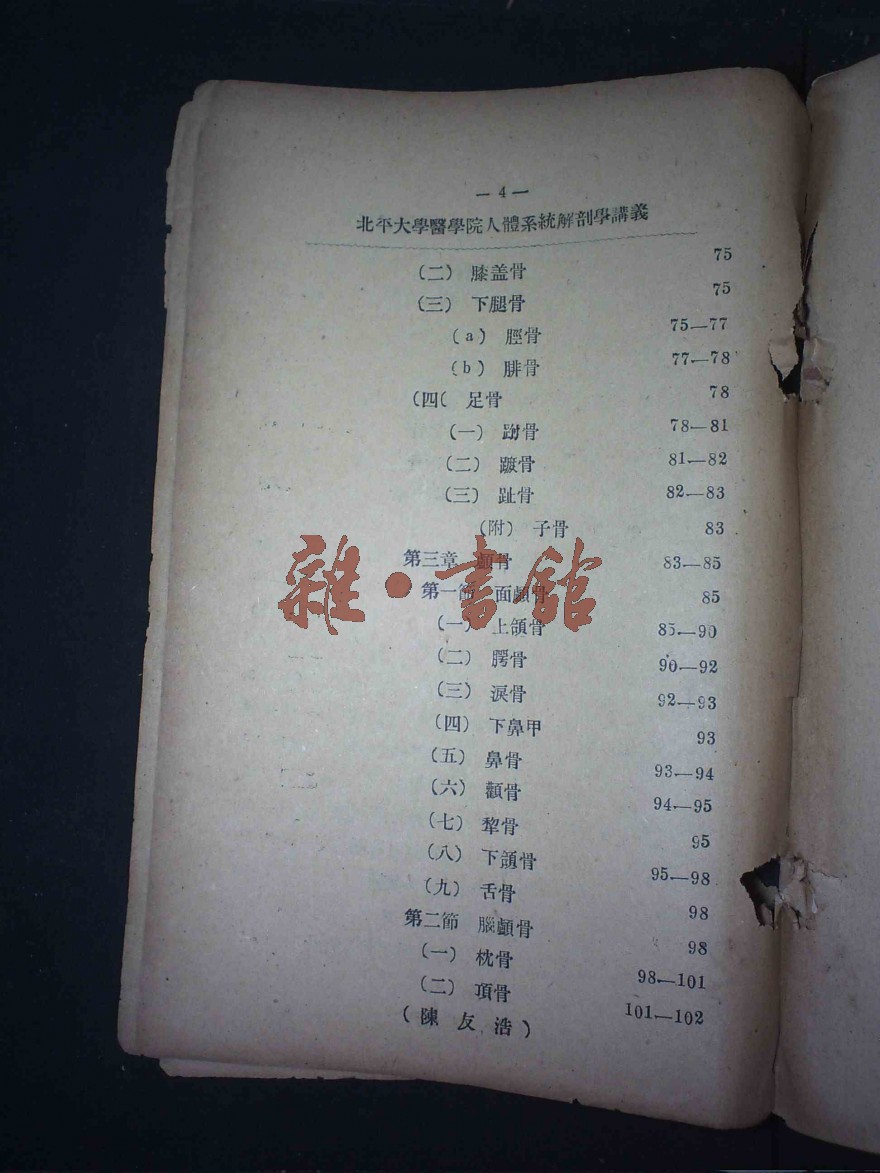 — 4 —
北平大學醫學院人體系統解剖學講義
(二) 膝盖骨 75
(三) 下腿骨 75
(a) 脛骨 75—77
(b) 腓骨 77—78
(四( 足骨 78
(一) 跗骨 78—81
(二) 蹠骨 81—82
(三) 趾骨 82—83
(附) 子骨 83
第三章 顱骨 83—85
第一節 面顱骨 85
(一) 上頜骨 85—90
(二) 腭骨 90—92
(三) 淚骨 92—93
(四) 下鼻甲 93
(五) 鼻骨 93—94
(六) 顴骨 94—95
(七) 犂骨 95
(八) 下頜骨 95—98
(九) 舌骨 98
第二節 腦顱骨 98
(一) 枕骨 98—101
(二) 項骨 101—102
(陳友浩)
雜·書館